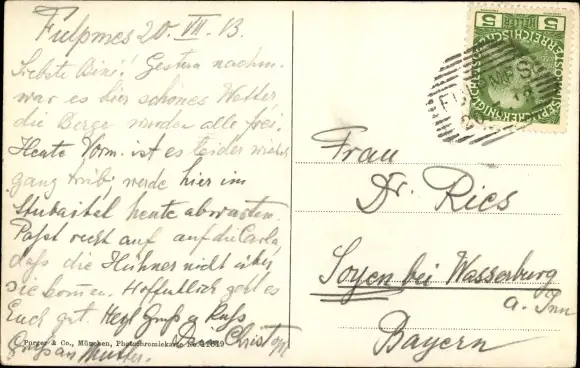 Fulpmes 20. VII. 13.
Liebste Bini! Gestern nachm.
war es hier schönes Wetter
die Berge wurden alle frei.
Heute Vorm. ist es leider wieder
ganz trüb, werde hier im
Stubaital heute abwarten.
Passt recht auf auf die Carla,
daß die Hühner nicht über
sie kommen. Hoffentlich geht es
Euch gut. Herzl. Gruß u. Kuß
Dein Christoph
Gruß an Mutter.
Purger & Co., München, Photochromiekarte No.
5 HELLER 5
FULPMES
Frau
Dr. Ries
Soyen bei Wasserburg
a. Inn
Bayern